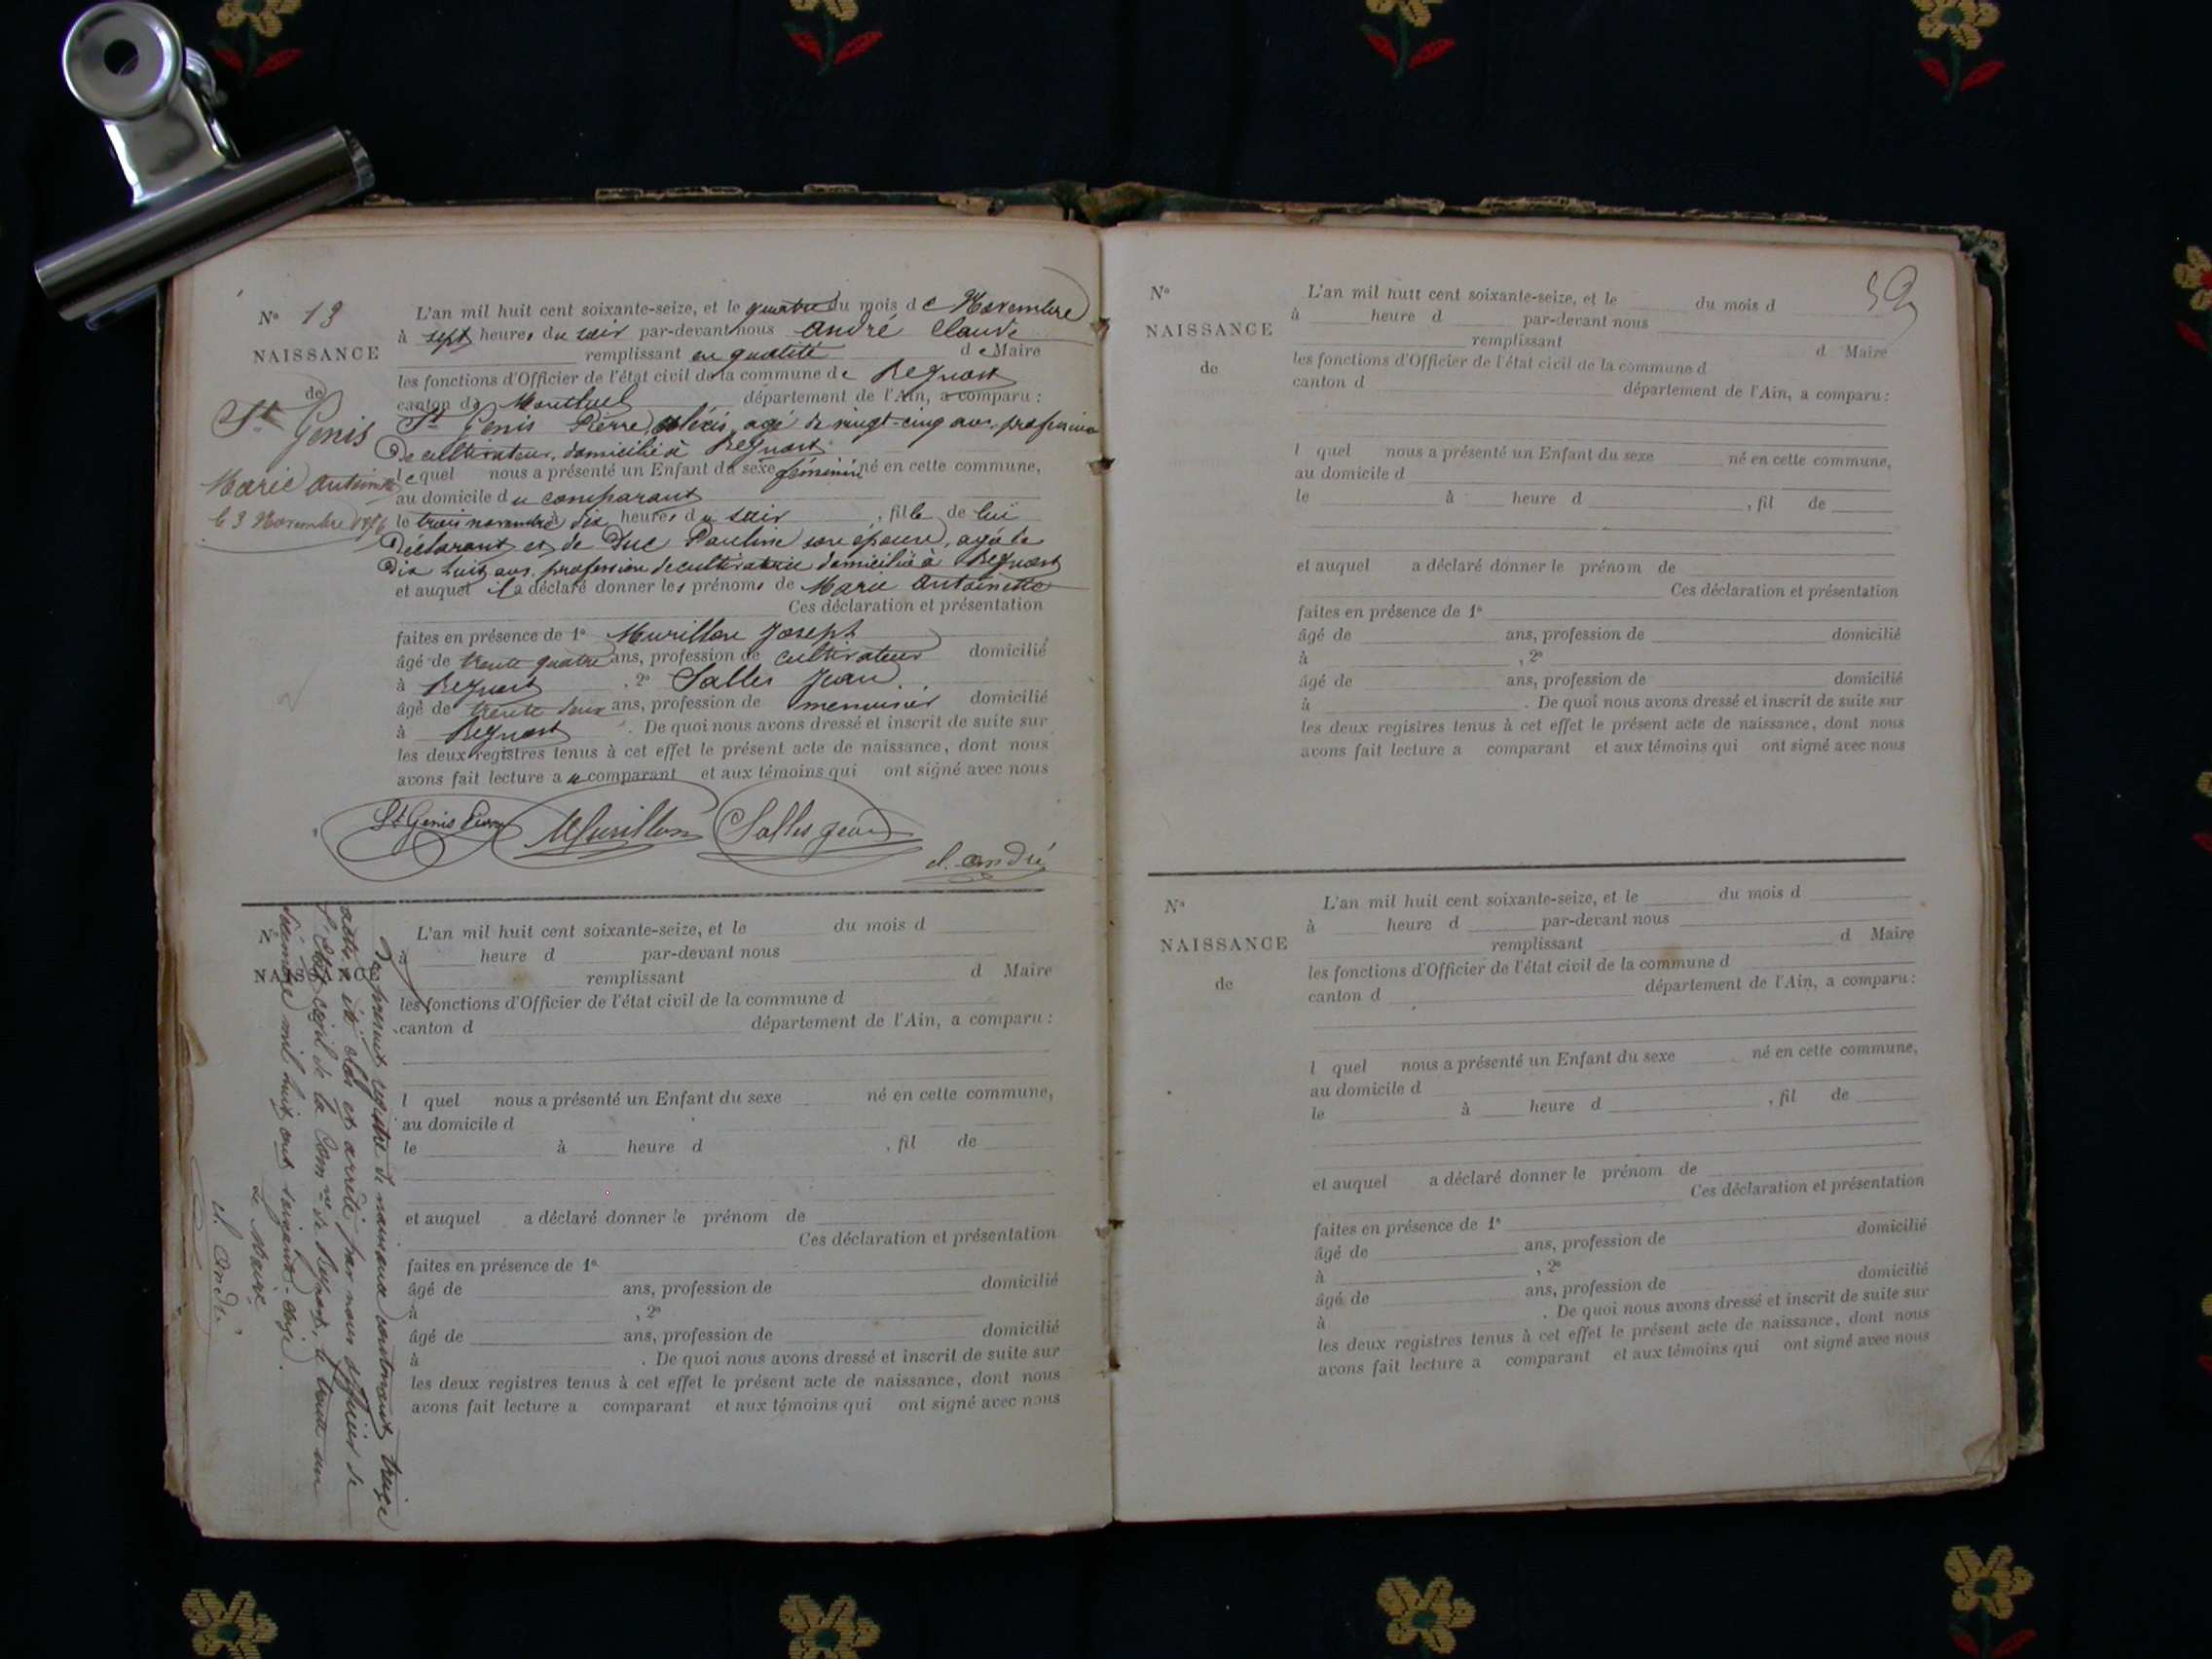 N° 13
NAISSANCE
de
St Genis
Marie Antoinette
le 3 Novembre 1876
L'an mil huit cent soixante-seize, et le quatre du mois de Novembre
à sept heures du soir par-devant nous André Claude
remplissant en qualité de Maire
les fonctions d'Officier de l'état civil de la commune de Beynost
canton de Montluel département de l'Ain, a comparu :
St Genis Pierre Alexis, agé de vingt-cinq ans, profession
de cultivateur, domicilié à Beynost
lequel nous a présenté un Enfant du sexe féminin né en cette commune,
au domicile du comparant
le trois novembre à dix heures du soir, fille de lui
Déclarant et de Duc Pauline son épouse, agée de
dix huit ans, profession de cultivatrice domiciliée à Beynost
et auquel il a déclaré donner les prénoms de Marie Antoinette
Ces déclaration et présentation
faites en présence de 1° Murillon Joseph
âgé de trente quatre ans, profession de cultivateur domicilié
à Beynost, 2° Salles Jean
âgé de trente deux ans, profession de menuisier domicilié
à Beynost. De quoi nous avons dressé et inscrit de suite sur
les deux registres tenus à cet effet le présent acte de naissance, dont nous
avons fait lecture au comparant et aux témoins qui ont signé avec nous
St Genis Pierre Murillon Salles Jean
cl. andré
Le présent registre de naissance contenant treize
actes a été clos et arrêté par nous officier de
l'Etat civil de la Comne de Beynost, le trente un
décembre mil huit cent soixante-seize.
Le Maire
cl. André
N°
NAISSANCE
L'an mil huit cent soixante-seize, et le du mois d
à heure d par-devant nous
remplissant d Maire
les fonctions d'Officier de l'état civil de la commune d
canton d département de l'Ain, a comparu :
l quel nous a présenté un Enfant du sexe né en cette commune,
au domicile d
le à heure d , fil de
et auquel a déclaré donner le prénom de
Ces déclaration et présentation
faites en présence de 1°
âgé de ans, profession de domicilié
à , 2°
âgé de ans, profession de domicilié
à . De quoi nous avons dressé et inscrit de suite sur
les deux registres tenus à cet effet le présent acte de naissance, dont nous
avons fait lecture a comparant et aux témoins qui ont signé avec nous
N°
NAISSANCE
de
L'an mil huit cent soixante-seize, et le du mois d
à heure d par-devant nous
remplissant d Maire
les fonctions d'Officier de l'état civil de la commune d
canton d département de l'Ain, a comparu :
l quel nous a présenté un Enfant du sexe né en cette commune,
au domicile d
le à heure d , fil de
et auquel a déclaré donner le prénom de
Ces déclaration et présentation
faites en présence de 1°
âgé de ans, profession de domicilié
à , 2°
âgé de ans, profession de domicilié
à . De quoi nous avons dressé et inscrit de suite sur
les deux registres tenus à cet effet le présent acte de naissance, dont nous
avons fait lecture a comparant et aux témoins qui ont signé avec nous
N°
NAISSANCE
de
L'an mil huit cent soixante-seize, et le du mois d
à heure d par-devant nous
remplissant d Maire
les fonctions d'Officier de l'état civil de la commune d
canton d département de l'Ain, a comparu :
l quel nous a présenté un Enfant du sexe né en cette commune,
au domicile d
le à heure d , fil de
et auquel a déclaré donner le prénom de
Ces déclaration et présentation
faites en présence de 1°
âgé de ans, profession de domicilié
à , 2°
âgé de ans, profession de domicilié
à . De quoi nous avons dressé et inscrit de suite sur
les deux registres tenus à cet effet le présent acte de naissance, dont nous
avons fait lecture a comparant et aux témoins qui ont signé avec nous